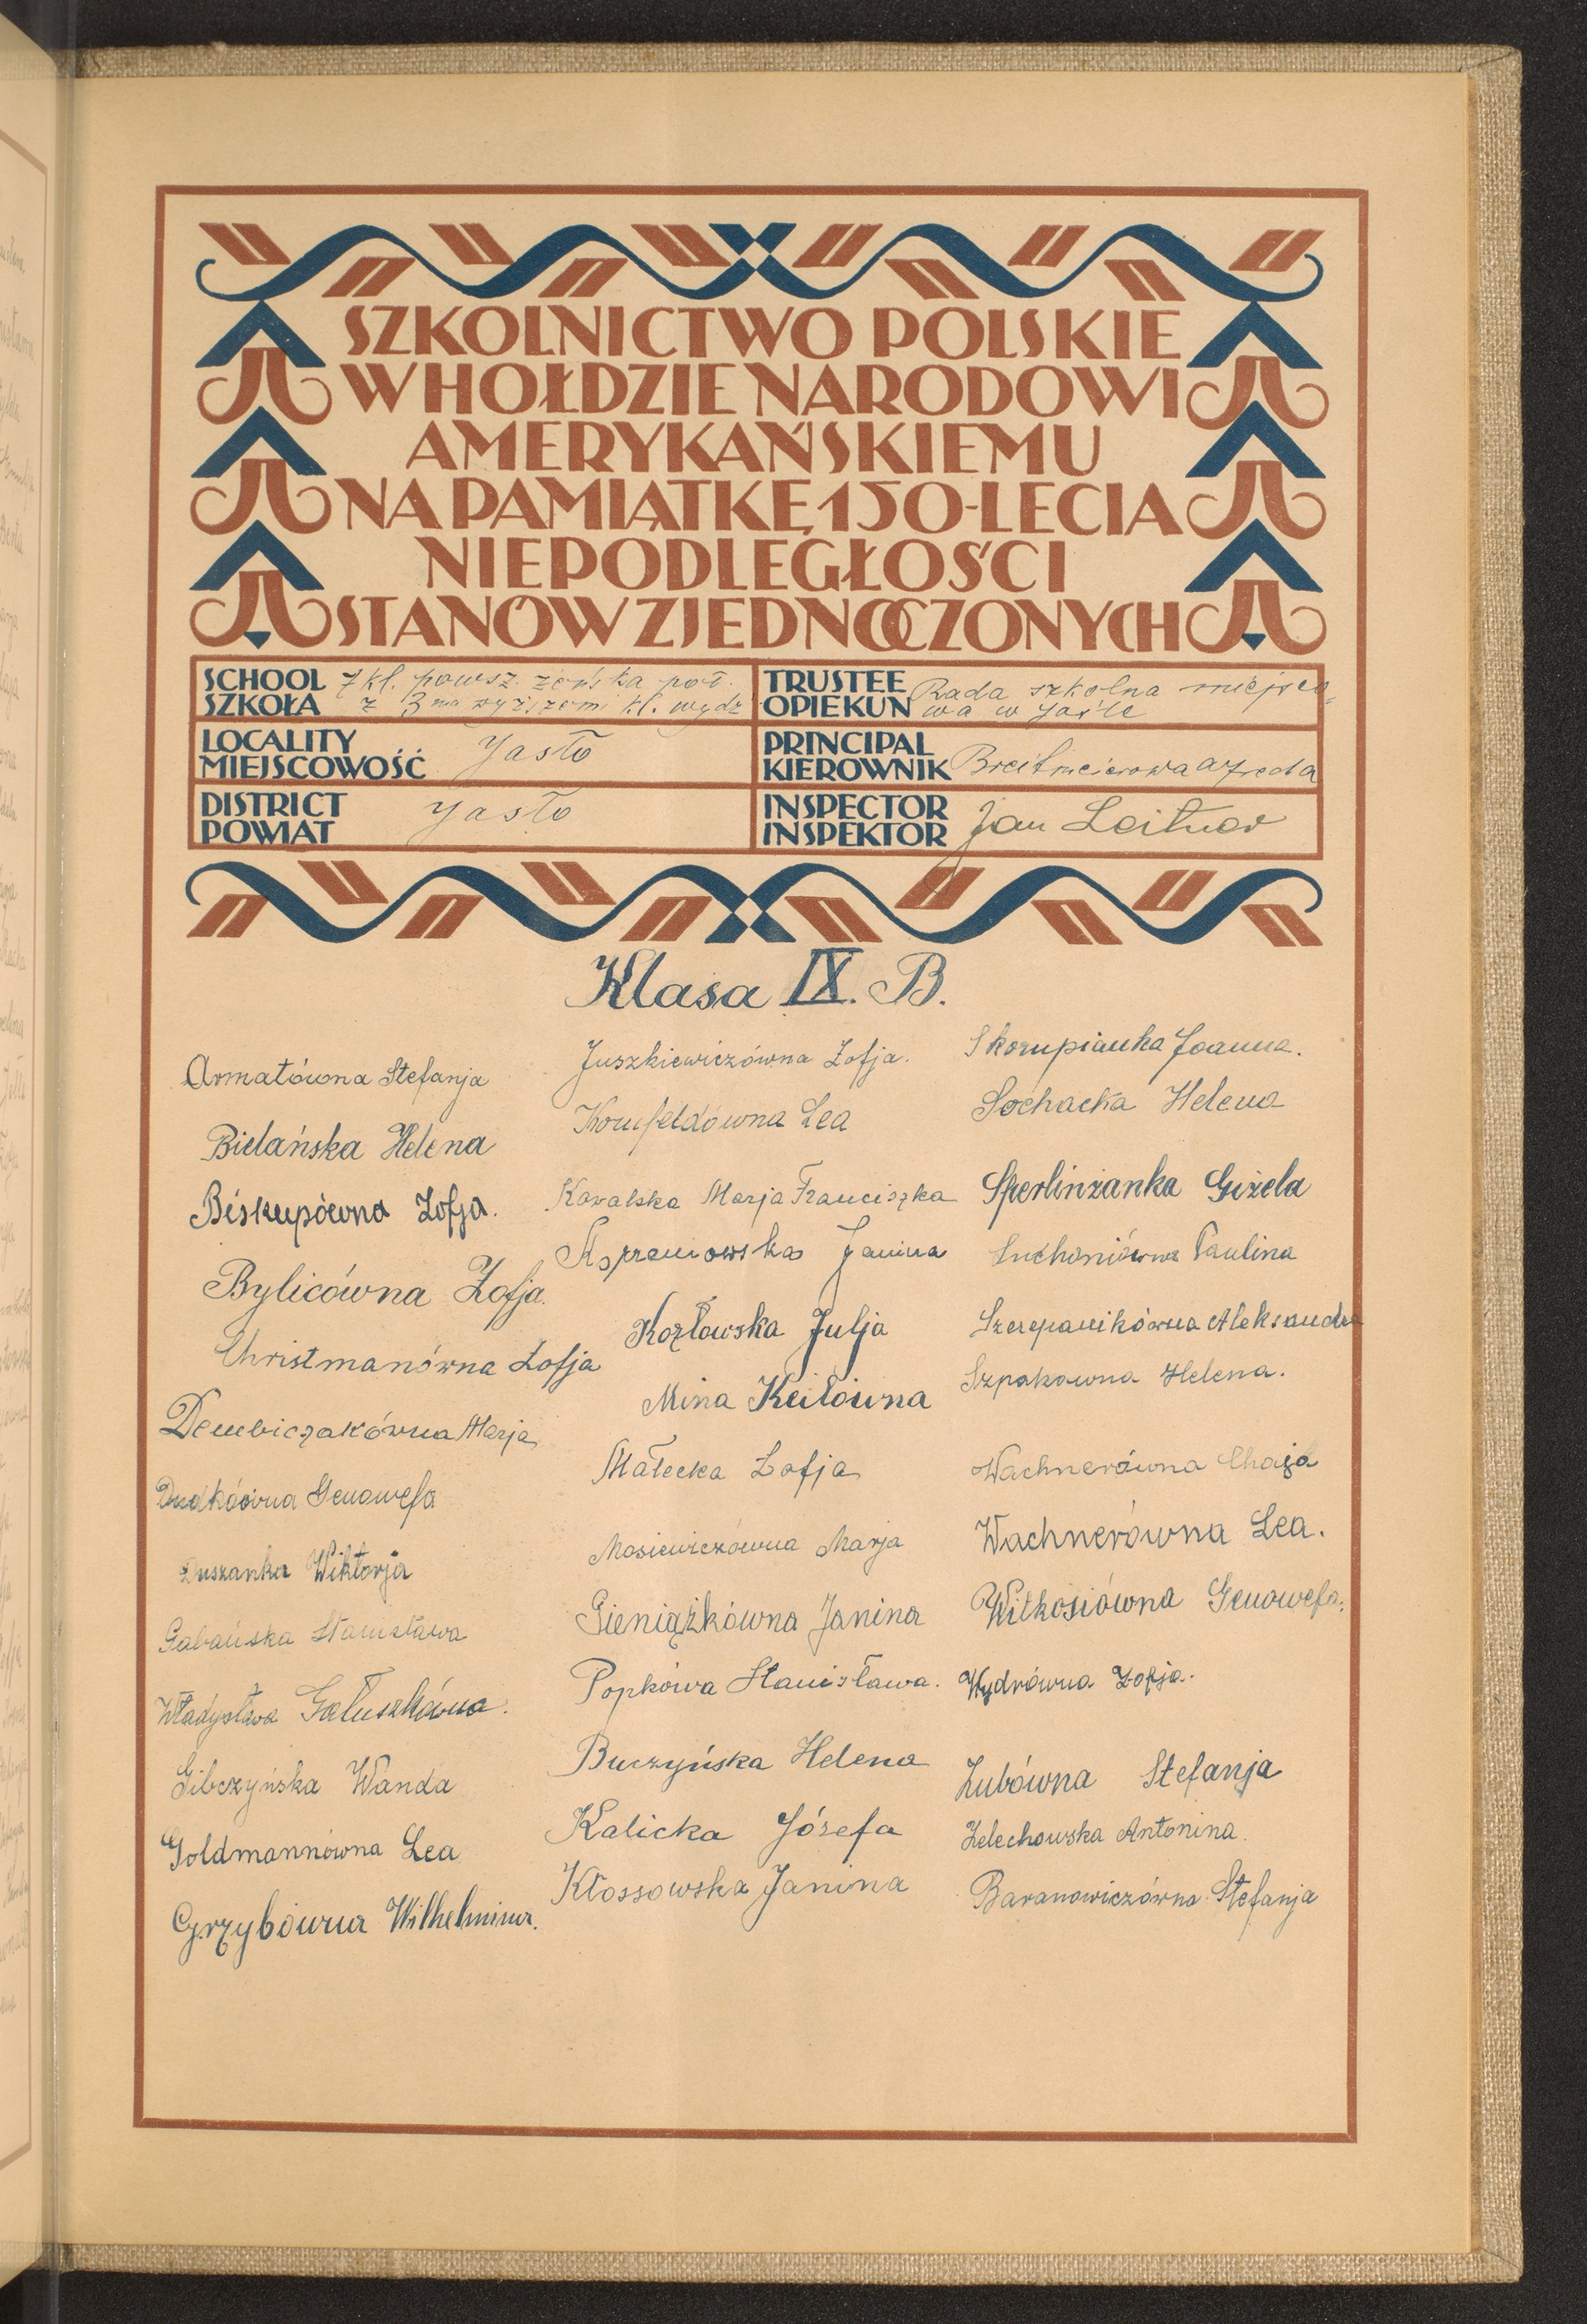 SZKOLNICTWO POLSKIE
W HOŁDZIE NARODOWI
AMERYKAŃSKIEMU
NA PAMIĄTKĘ 150-LECIA
NIEPODLEGŁOŚCI
STANÓW ZJEDNOCZONYCH
SCHOOL
SZKOŁA
7 kl. powsz. żeńska poł.
z 3ma wyższemi kl. wydz
TRUSTEE
OPIEKUN
Rada szkolna miejsco-
wa w Jaśle
LOCALITY
MIEJSCOWOŚĆ
Jasło
PRINCIPAL
KIEROWNIK
Breitmeierowa
DISTRICT
POWIAT
Jasło
INSPECTOR
INSPEKTOR
Jan Leitner
Klasa IX. B.
Armatówna Stefanja
Bielańska Helena
Biskupówna Zofja.
Bylicówna Zofja.
Christmanówna Zofja
Dembiczakówna Marja
Dudkówna Genowefa
Duszanka Wiktorja
Gabańska Stanisława
Władysława Gałuszkówna.
Gibczyńska Wanda
Goldmannówna Lea
Grzybówna Wilhelmina.
Juszkiewiczówna Zofja.
Kornfeldówna Lea
Kowalska Marja Franciszka
Janina
Kozłowska Julja
Mina Keilówna
Małecka Zofja
Mosiewiczówna Marja
Pieniążkówna Janina
Popkówa Stanisława.
Buczyńska Helena
Kalicka Józefa
Kłossowska Janina
Skorupianka Joanna.
Sochacka Helena
Sperlinżanka Giżela
Suchoniówna Paulina
Szczepanikówna Aleksandra
Szpakowna Helena.
Wachnerówna Chaja
Wachnerówna Lea.
Witkosiówna Genowefa.
Wydrówna Zofja.
Zubówna Stefanja
Zelechowska Antonina.
Baranowiczówna Stefanja